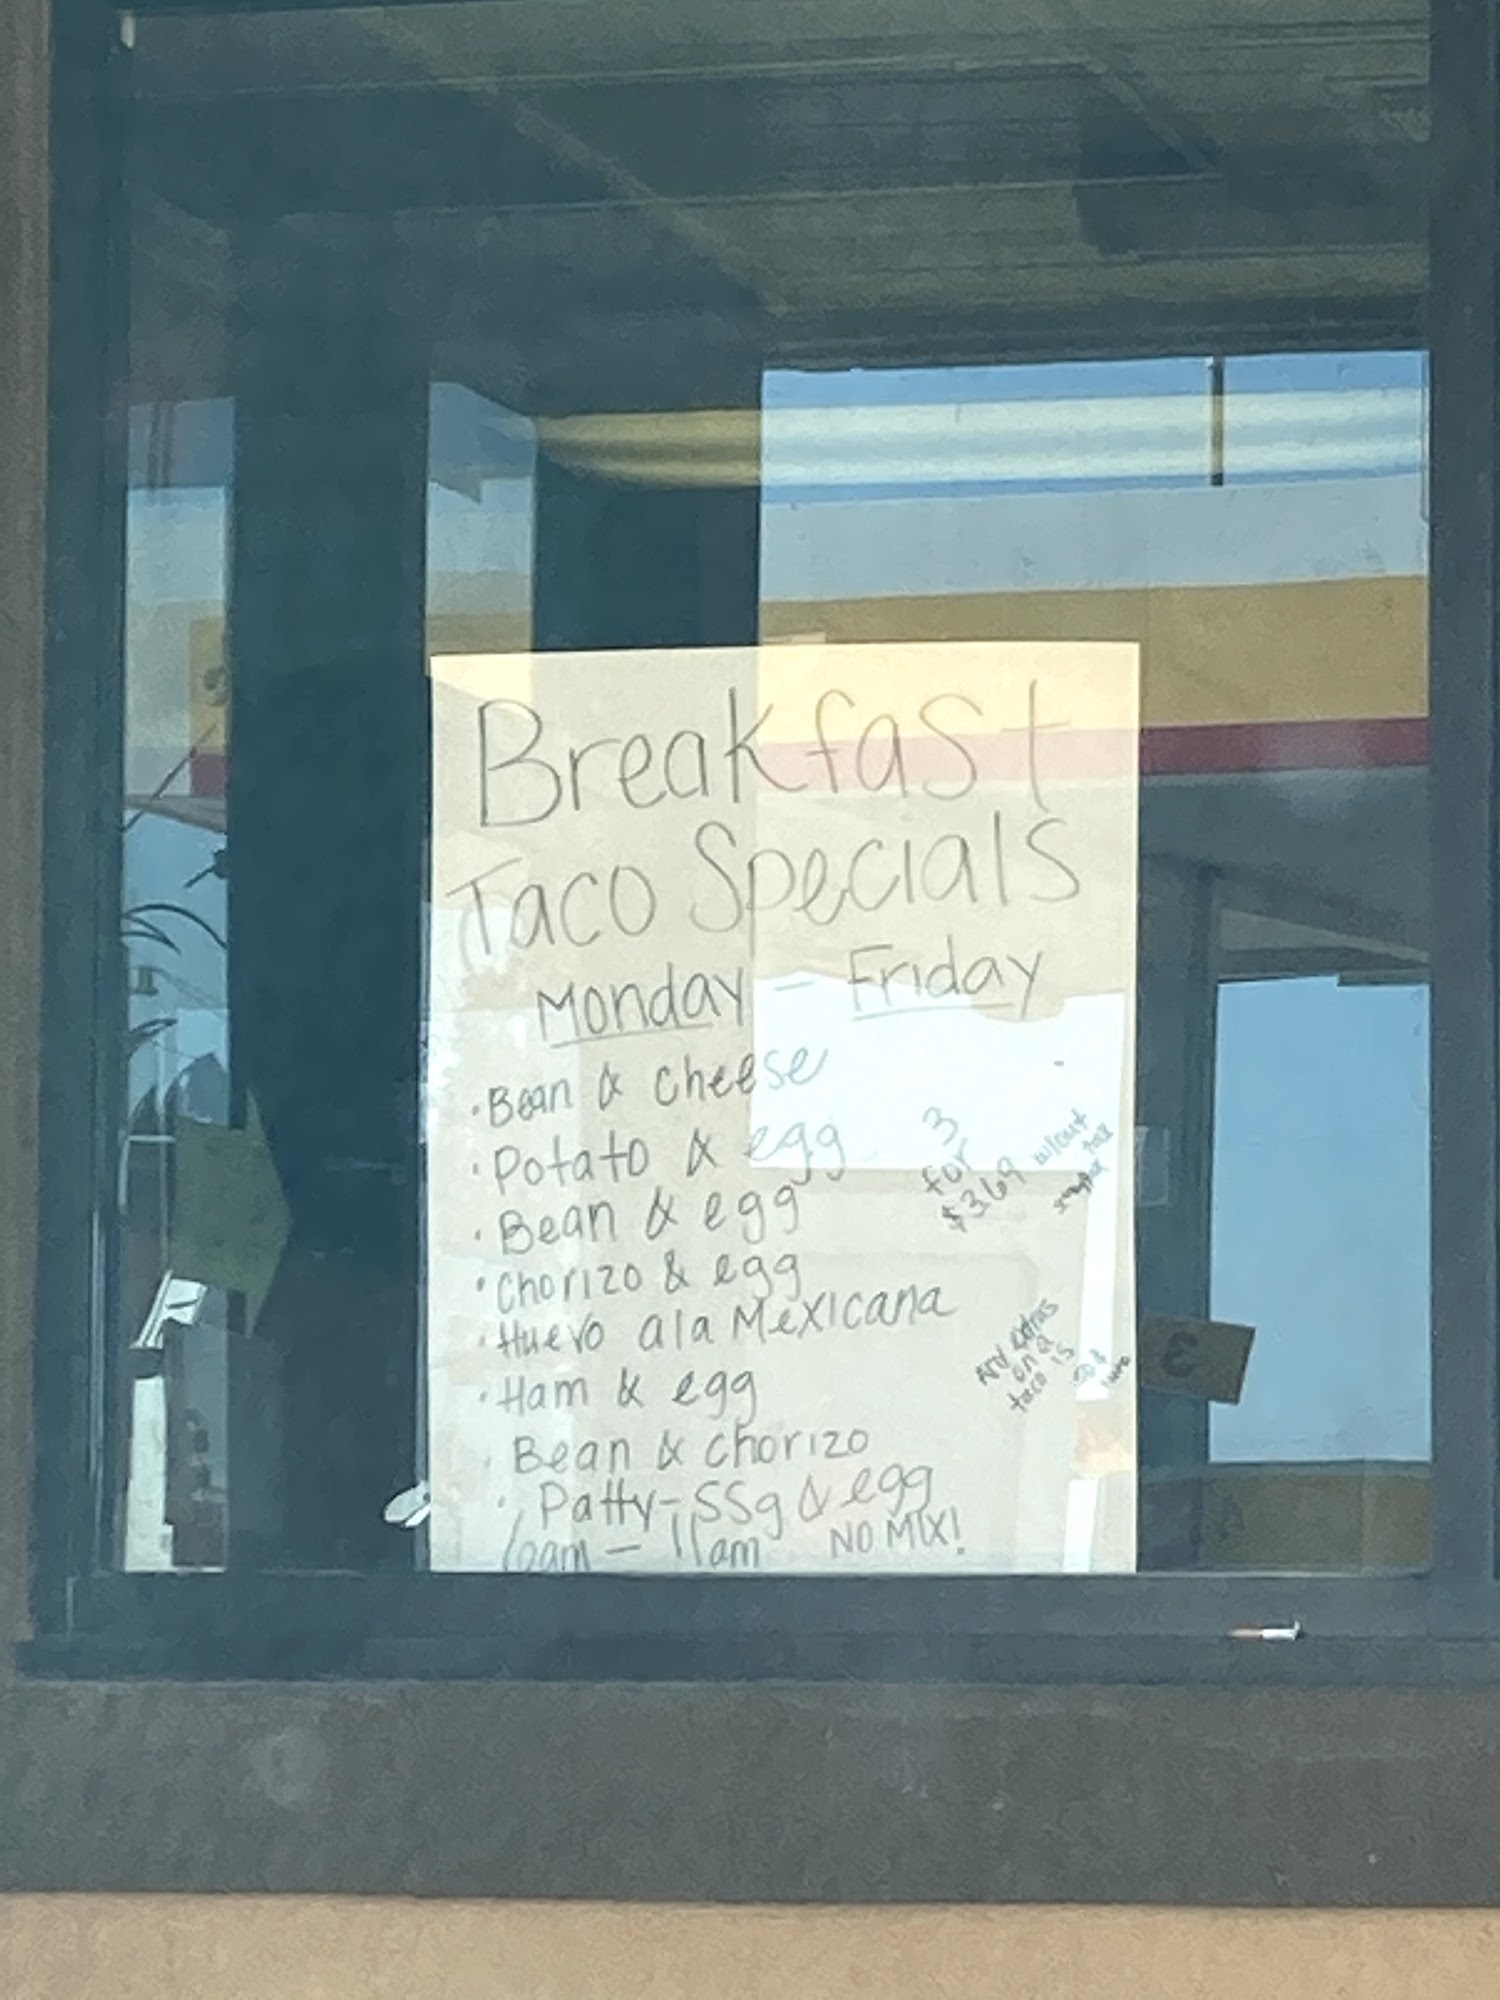 Breakfast
Taco Specials
Monday - Friday
• Bean & cheese
• Potato & egg
• Bean & egg
• Chorizo & egg
• Huevo ala Mexicana
• Ham & egg
• Bean & chorizo
• Patty-SSg & egg
6am - 11am NO MIX!
3
for
$3.69
w/out
tax
Any extras
on a
taco is
50¢
more
3